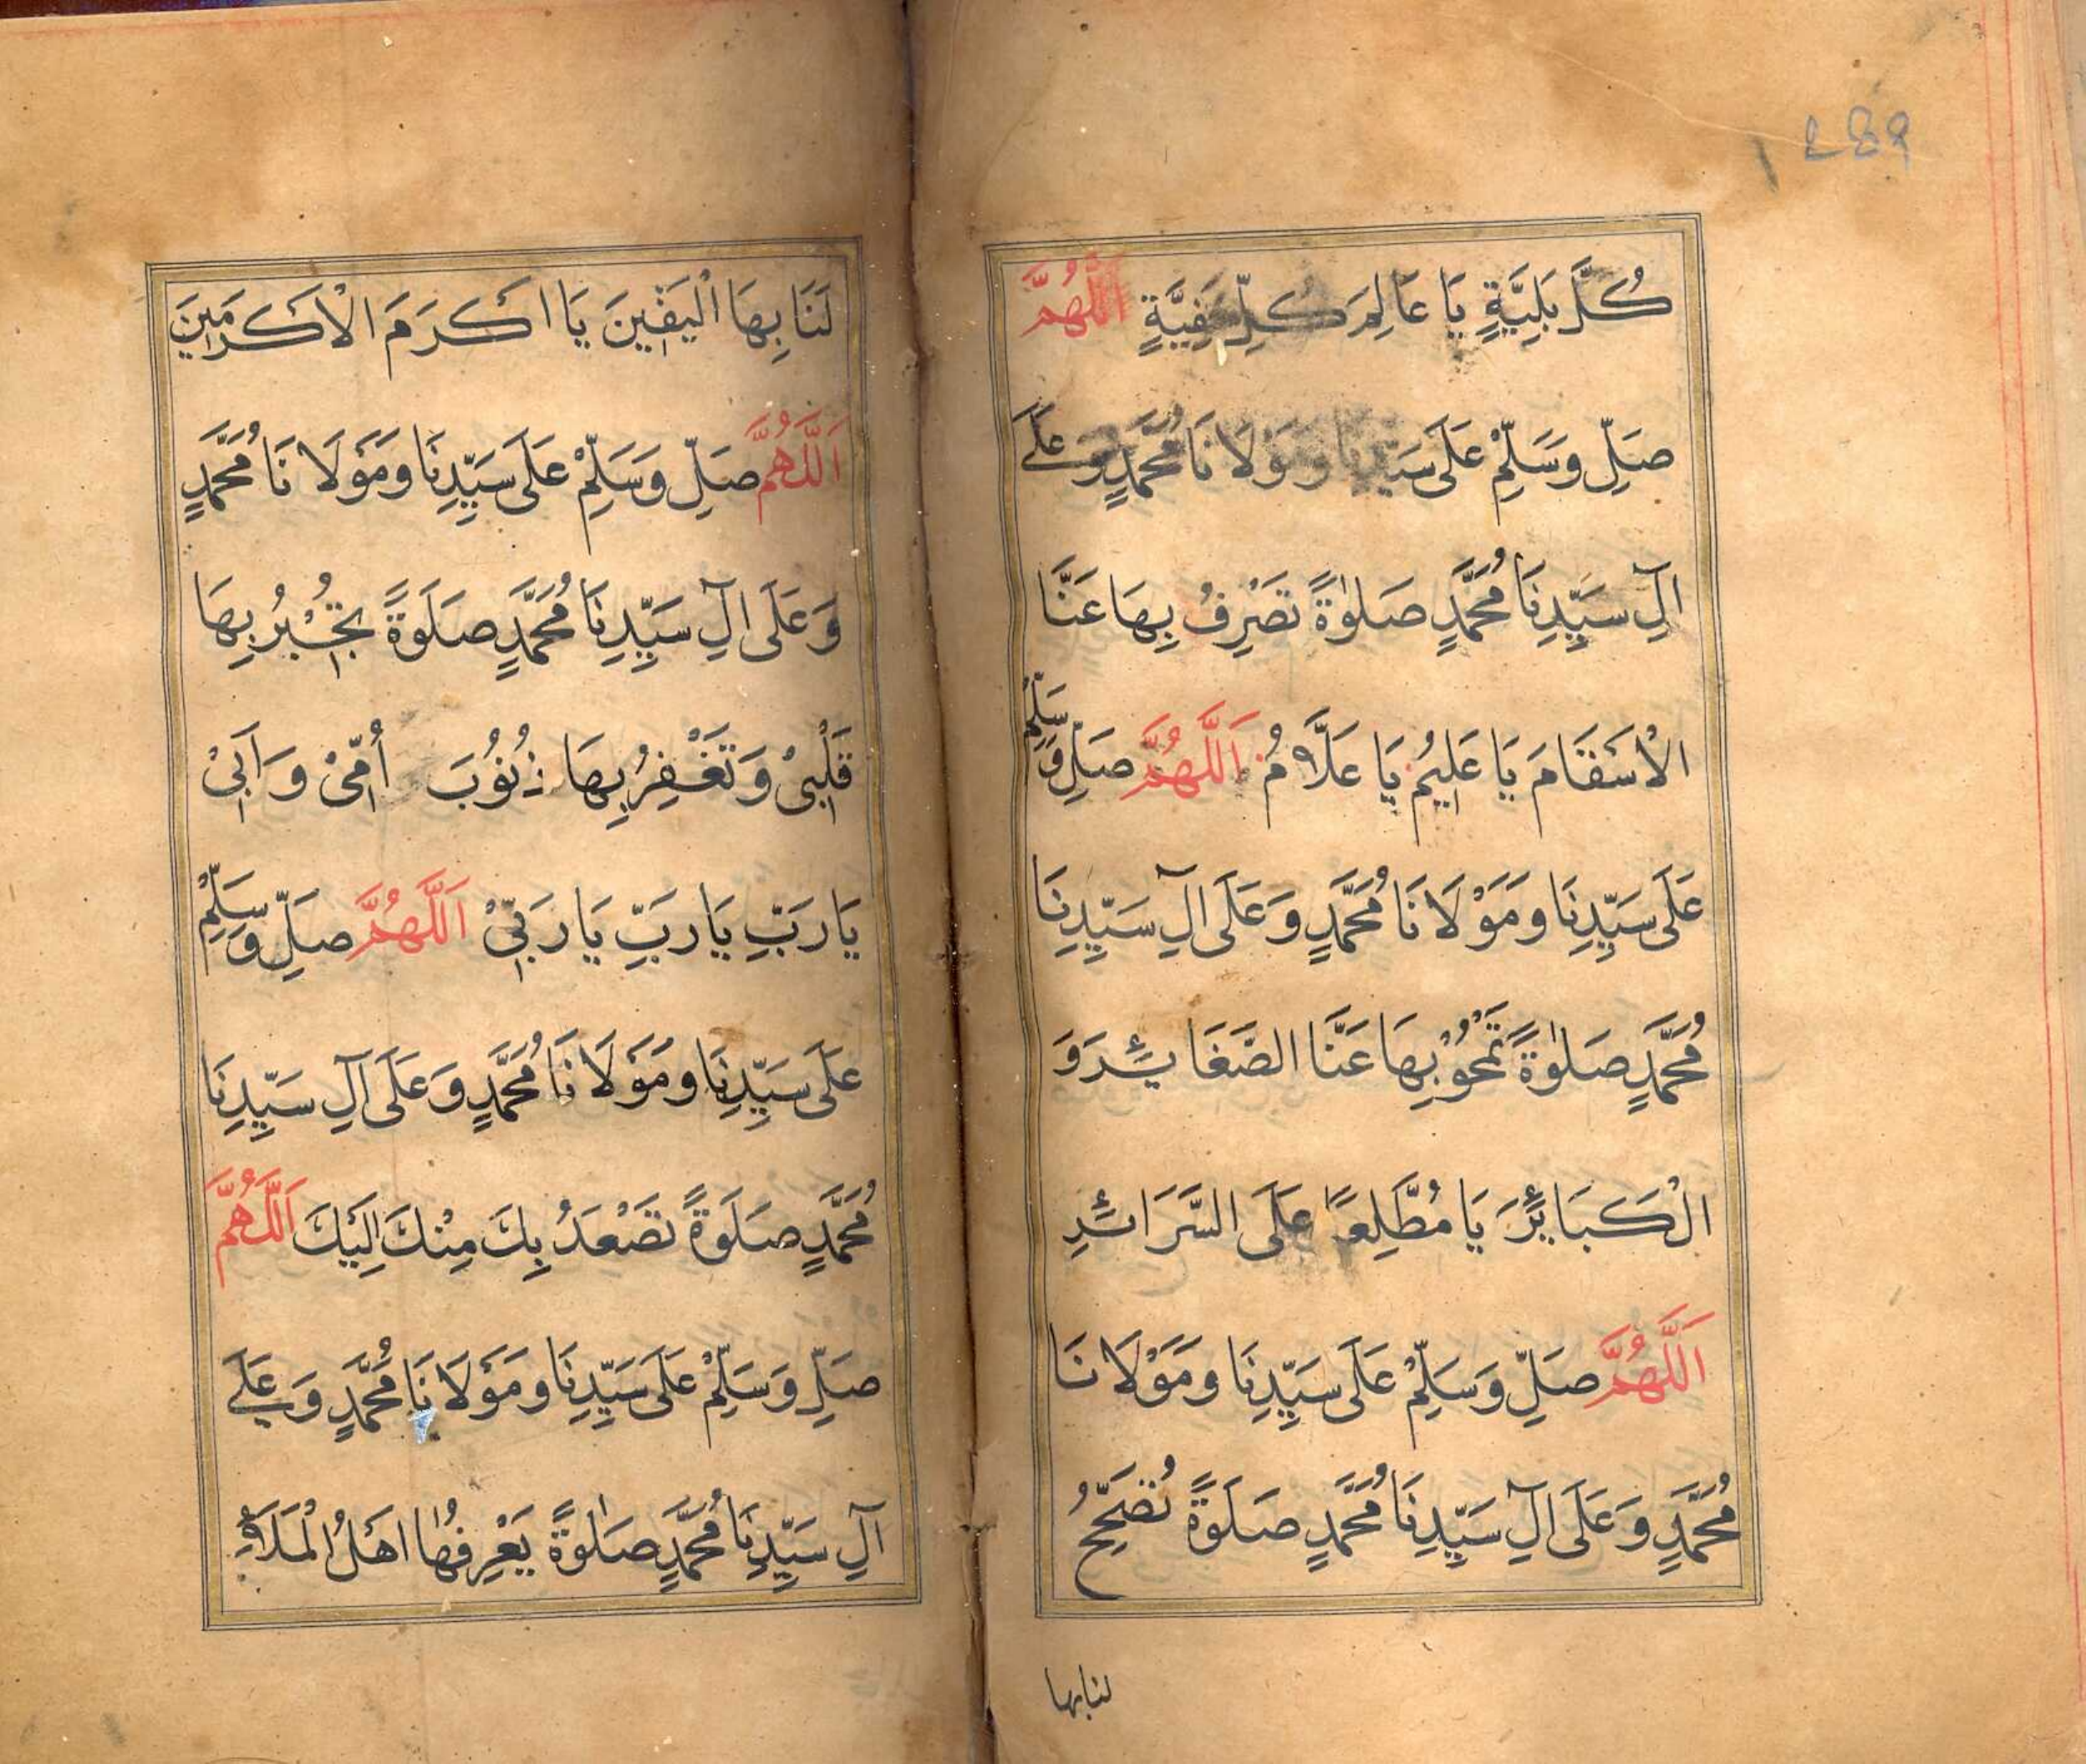 كُلَّ بَلِيَّةٍ يَا عَالِمَ كُلِّ خَفِيَّةٍ اَللّٰهُمَّ
صَلِّ وَسَلِّمْ عَلَى سَيِّدِنَا وَمَوْلَا نَا مُحَمَّدٍ وَعَلَے
اٰلِ سَيِّدِنَا مُحَمَّدٍ صَلٰوةً تَصْرِفُ بِهَا عَنَّا
الْاَسْقَامَ يَا عَلِيمُ يَا عَلَّامُ اَللّٰهُمَّ صَلِّ وَسَلِّمْ
عَلَى سَيِّدِنَا وَمَوْلَا نَا مُحَمَّدٍ وَعَلَى اٰلِ سَيِّدِنَا
مُحَمَّدٍ صَلٰوةً تَمْحُوْ بِهَا عَنَّا الصَّغَائِرَ وَ
الْكَبَائِرَ يَا مُطَّلِعًا عَلَى السَّرَائِرِ
اَللّٰهُمَّ صَلِّ وَسَلِّمْ عَلَى سَيِّدِنَا وَمَوْلَا نَا
مُحَمَّدٍ وَعَلَى اٰلِ سَيِّدِنَا مُحَمَّدٍ صَلَوةً تُصَحِّحُ
لنابها
لَنَا بِهَا الْيَقِيْنَ يَا اَكْرَمَ الْاَكْرَمِيْنَ
اَللّٰهُمَّ صَلِّ وَسَلِّمْ عَلَى سَيِّدِنَا وَمَوْلَا نَا مُحَمَّدٍ
وَعَلَى اٰلِ سَيِّدِنَا مُحَمَّدٍ صَلَوةً تَجْبُرُ بِهَا
قَلْبِىْ وَتَغْفِرُ بِهَا ذُنُوْبَ اُمِّىْ وَاَبِىْ
يَارَبِّ يَارَبِّ يَارَبِّىْ اَللّٰهُمَّ صَلِّ وَسَلِّمْ
عَلَى سَيِّدِنَا وَمَوْلَا نَا مُحَمَّدٍ وَعَلَى اٰلِ سَيِّدِنَا
مُحَمَّدٍ صَلَوةً تَصْعَدُ بِكَ مِنْكَ اِلَيْكَ اَللّٰهُمَّ
صَلِّ وَسَلِّمْ عَلَى سَيِّدِنَا وَمَوْلَا نَا مُحَمَّدٍ وَعَلَے
اٰلِ سَيِّدِنَا مُحَمَّدٍ صَلٰوةً يَعْرِفُهَا اَهْلُ الْمَلَاءِ